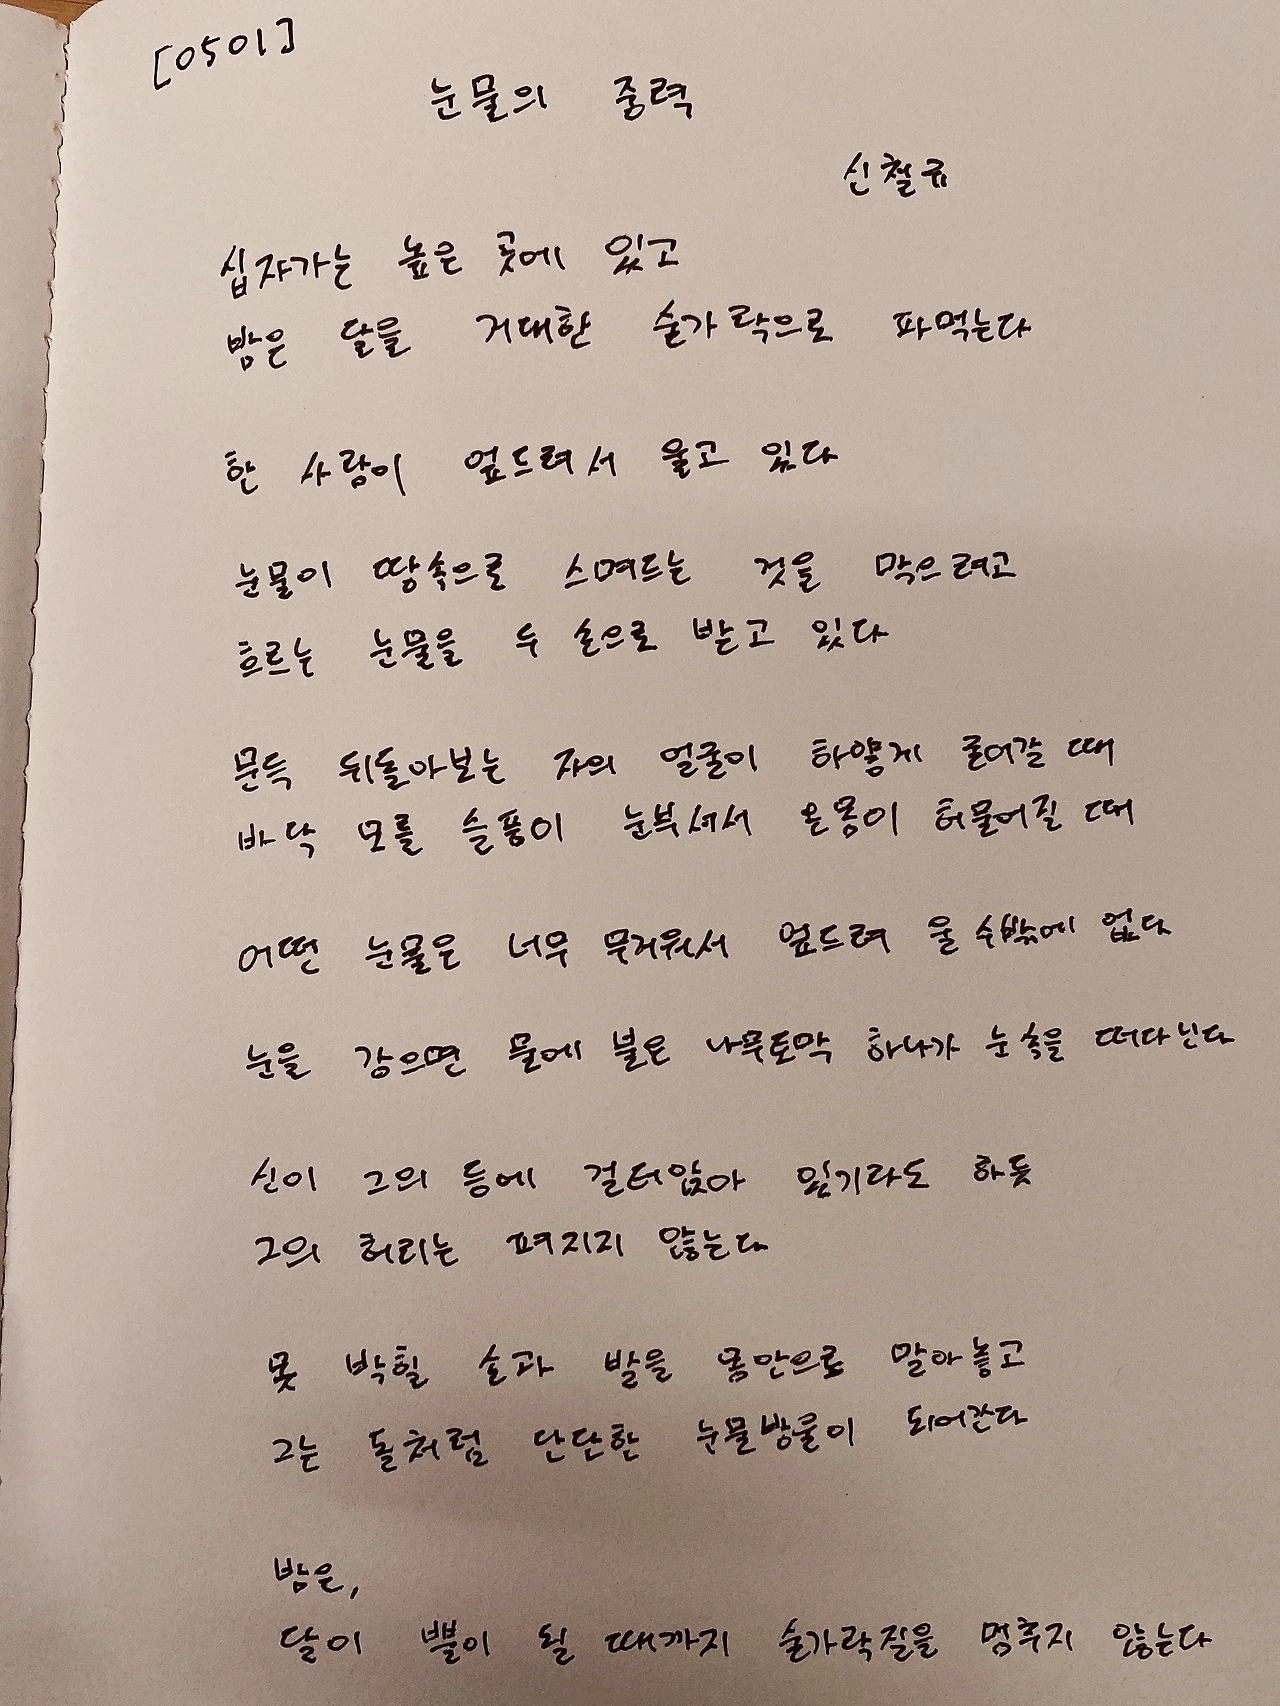 [0501]
눈물의 중력
신철규
십자가는 높은 곳에 있고
밤은 달을 거대한 숟가락으로 파먹는다
한 사람이 엎드려서 울고 있다
눈물이 땅속으로 스며드는 것을 막으려고
흐르는 눈물을 두 손으로 받고 있다
문득 뒤돌아보는 자의 얼굴이 하얗게 굳어갈 때
바닥 모를 슬픔이 눈부셔서 온몸이 허물어질 때
어떤 눈물은 너무 무거워서 엎드려 울 수밖에 없다
눈을 감으면 물에 불은 나무토막 하나가 눈 속을 떠다닌다
신이 그의 등에 걸터앉아 있기라도 하듯
그의 허리는 펴지지 않는다
못 박힐 손과 발을 몸안으로 말아넣고
그는 돌처럼 단단한 눈물방울이 되어간다
밤은,
달이 뿔이 될 때까지 숟가락질을 멈추지 않는다